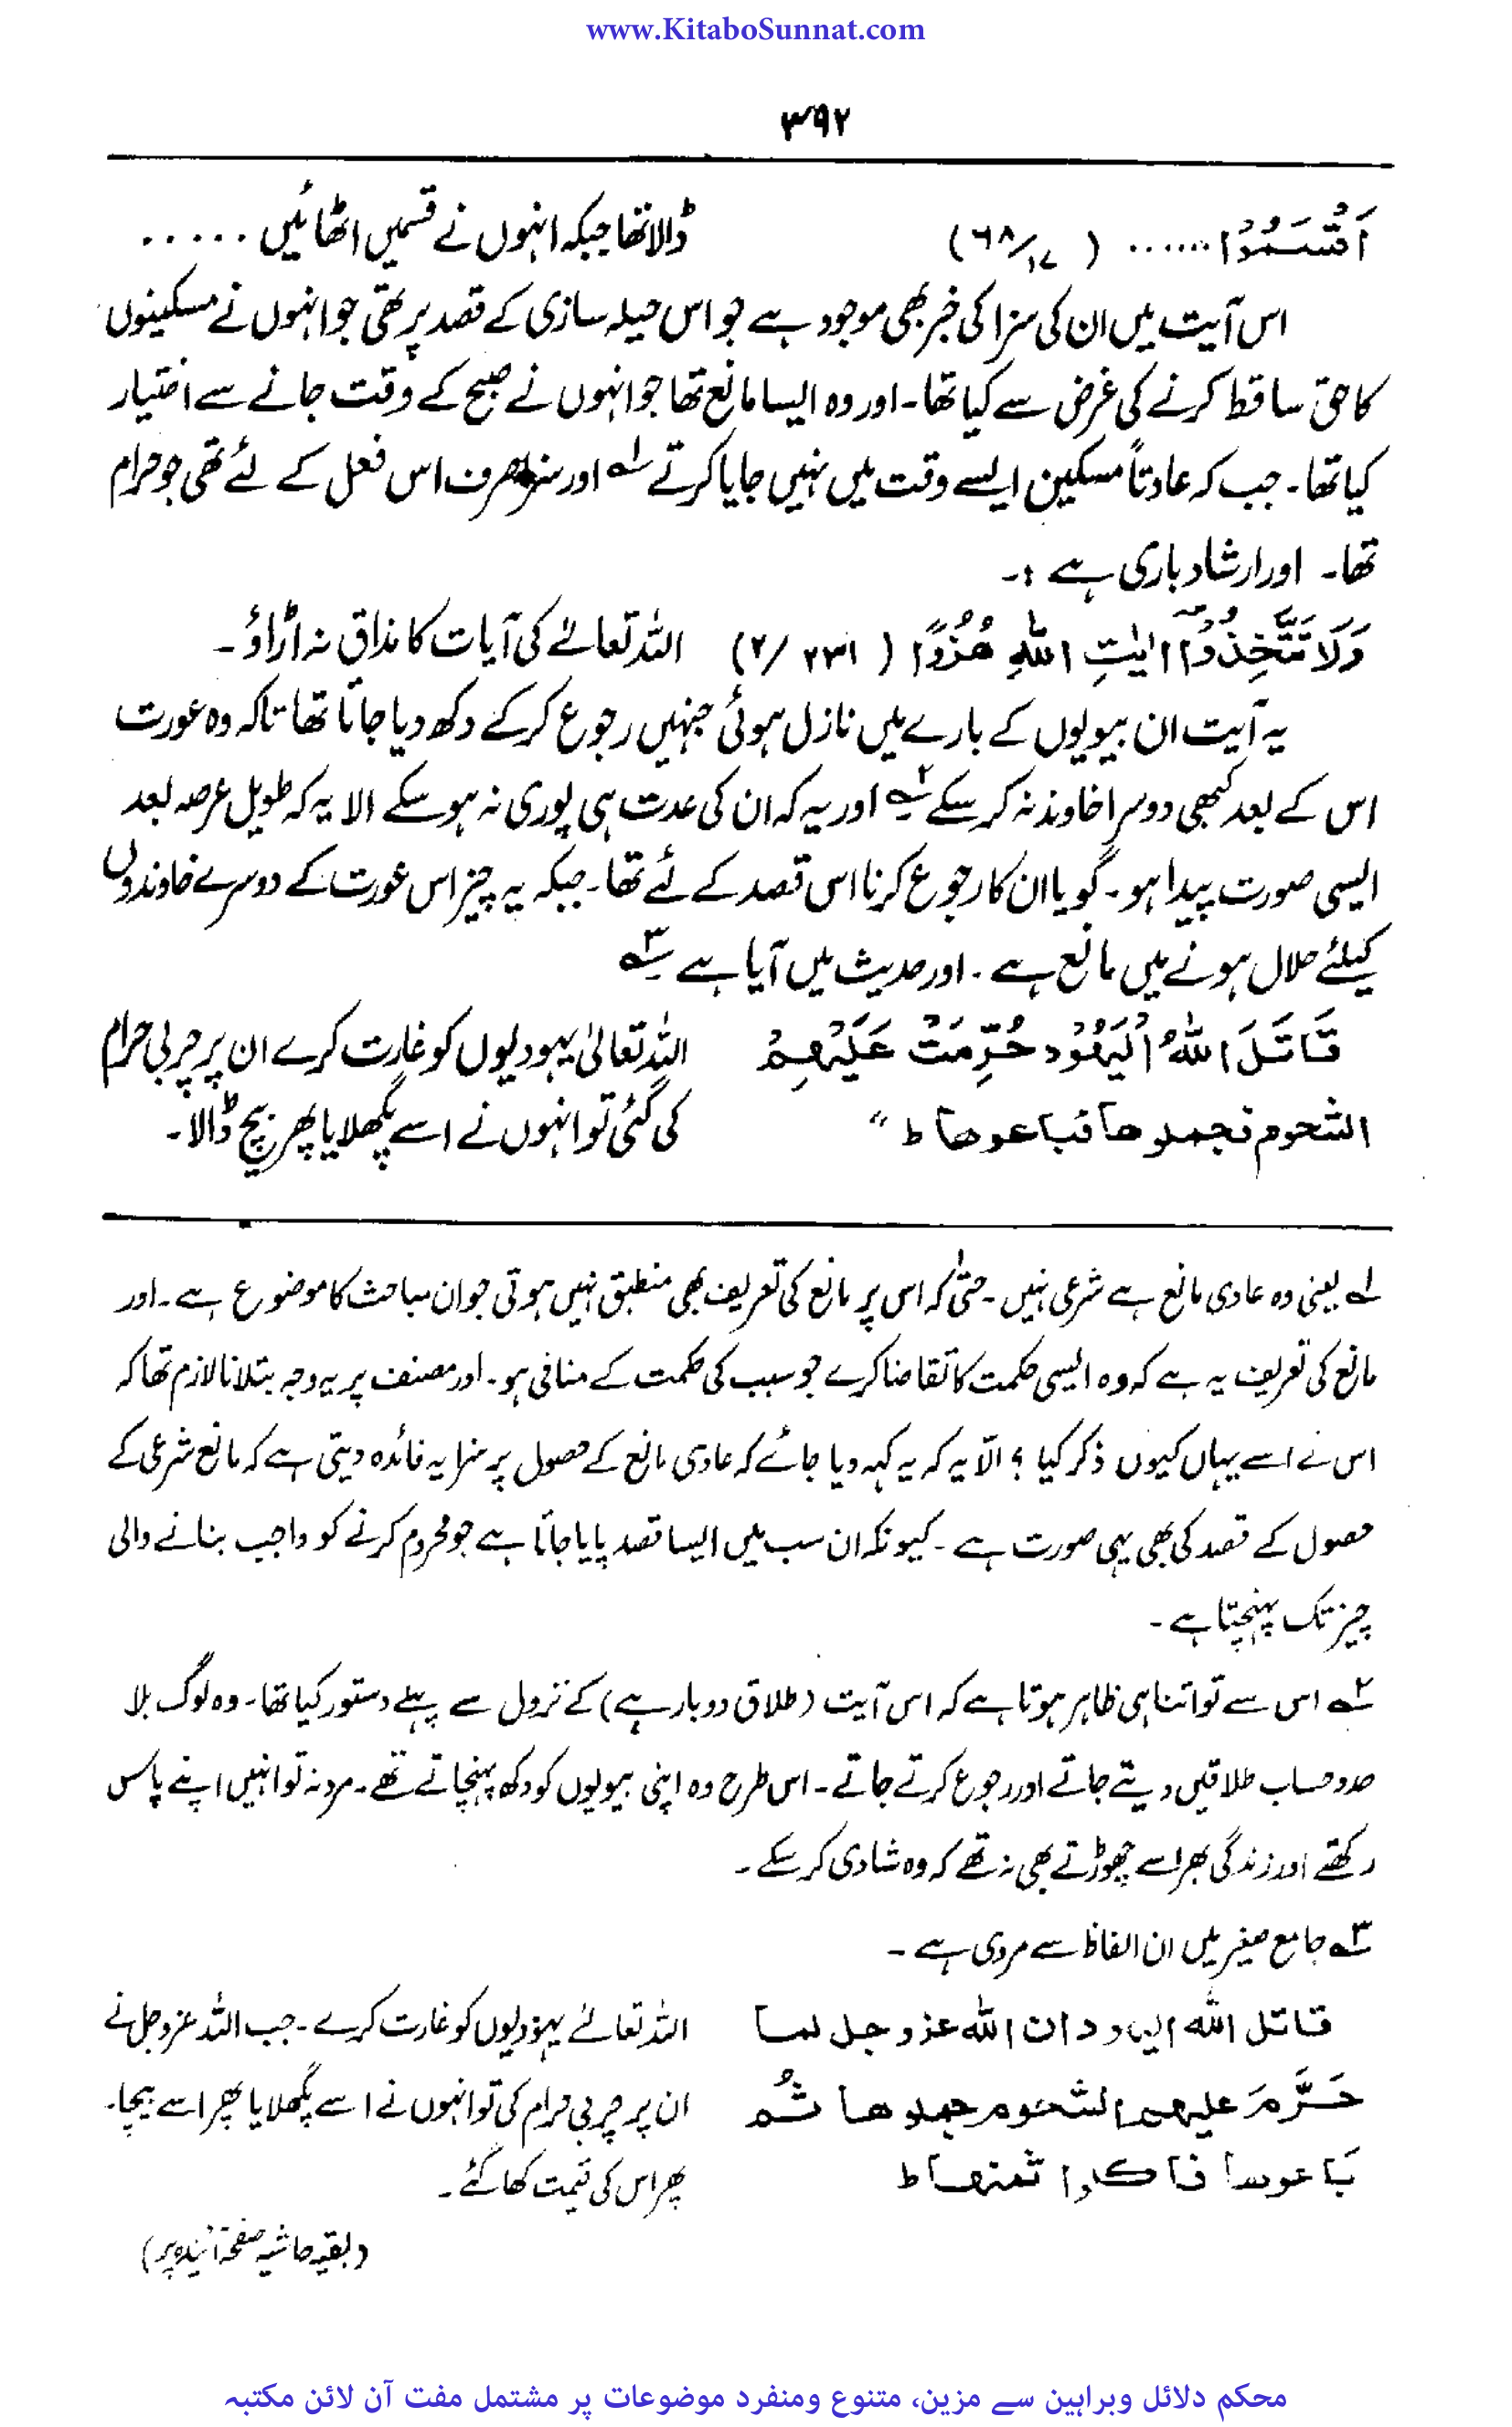 www.KitaboSunnat.com
۳۹۲
اَقْسَمُوْا ...... ( ۶۸/۱۷ ) ڈالا تھا جبکہ انہوں نے قسمیں اٹھائیں .....
اس آیت میں ان کی سزا کی خبر بھی موجود ہے جو اس حیلہ سازی کے قصد پر تھی جو انہوں نے مسکینوں
کا حق ساقط کرنے کی غرض سے کیا تھا۔ اور وہ ایسا مانع تھا جو انہوں نے صبح کے وقت جانے سے اختیار
کیا تھا۔ جب کہ عادتاً مسکین ایسے وقت میں نہیں جایا کرتے ۱؎ اور سزا صرف اس فعل کے لئے تھی جو حرام
تھا۔ اور ارشاد باری ہے :۔
وَلَا تَتَّخِذُوْٓا اٰیٰتِ اللّٰہِ ھُزُوًا ( ۲/۲۳۱ ) اللہ تعالےٰ کی آیات کا مذاق نہ اڑاؤ ۔
یہ آیت ان بیویوں کے بارے میں نازل ہوئی جنہیں رجوع کرکے دکھ دیا جاتا تھا تاکہ وہ عورت
اس کے بعد کبھی دوسرا خاوند نہ کر سکے ۲؎ اور یہ کہ ان کی عدت ہی پوری نہ ہو سکے الا یہ کہ طویل عرصہ بعد
ایسی صورت پیدا ہو۔ گویا ان کا رجوع کرنا اس قصد کے لئے تھا۔ جبکہ یہ چیز اس عورت کے دوسرے خاوندوں
کیلئے حلال ہونے میں مانع ہے ۔ اور حدیث میں آیا ہے ۳؎
قَاتَلَ اللّٰہُ الْیَھُوْد حُرِّمَتْ عَلَیْھِمْ اللہ تعالیٰ یہودیوں کو غارت کرے ان پر چربی حرام
الشحوم فجملوھا فباعوھا ط ״ کی گئی تو انہوں نے اسے پگھلایا پھر بیچ ڈالا۔
۱؎ یعنی وہ عادی مانع ہے شرعی نہیں ۔ حتیٰ کہ اس پر مانع کی تعریف بھی منطبق نہیں ہوتی جو ان مباحث کا موضوع ہے ۔ اور
مانع کی تعریف یہ ہے کہ وہ ایسی حکمت کا تقاضا کرے جو سبب کی حکمت کے منافی ہو۔ اور مصنف پر یہ وجہ بتلانا لازم تھا کہ
اس نے اسے یہاں کیوں ذکر کیا ؟ الّا یہ کہ یہ کہہ دیا جائے کہ عادی مانع کے حصول پر سزا یہ فائدہ دیتی ہے کہ مانع شرعی کے
حصول کے قصد کی بھی یہی صورت ہے ۔ کیونکہ ان سب میں ایسا قصد پایا جاتا ہے جو محروم کرنے کو واجب بنانے والی
چیز تک پہنچتا ہے ۔
۲؎ اس سے تو اتنا ہی ظاہر ہوتا ہے کہ اس آیت (طلاق دوبار ہے) کے نزول سے پہلے دستور کیا تھا۔ وہ لوگ بلا
حد و حساب طلاقیں دیتے جاتے اور رجوع کرتے جاتے ۔ اس طرح وہ اپنی بیویوں کو دکھ پہنچاتے تھے ۔ مرد نہ تو انہیں اپنے پاس
رکھتے اور زندگی بھر اسے چھوڑتے بھی نہ تھے کہ وہ شادی کر سکے ۔
۳؎ جامع صغیر میں ان الفاظ سے مروی ہے ۔
قاتل اللہ الیہود ان اللہ عزوجل لما اللہ تعالےٰ یہودیوں کو غارت کرے ۔ جب اللہ عزوجل نے
حَرَّمَ علیھم الشحوم جملوھا ثُم ان پر چربی حرام کی تو انہوں نے اسے پگھلایا پھر اسے بیچا۔
بَاعوھا فاکلوا ثمنھا ط پھر اس کی قیمت کھا گئے ۔
(بقیہ حاشیہ صفحہ آئندہ پر)
محکم دلائل وبراہین سے مزین، متنوع ومنفرد موضوعات پر مشتمل مفت آن لائن مکتبہ